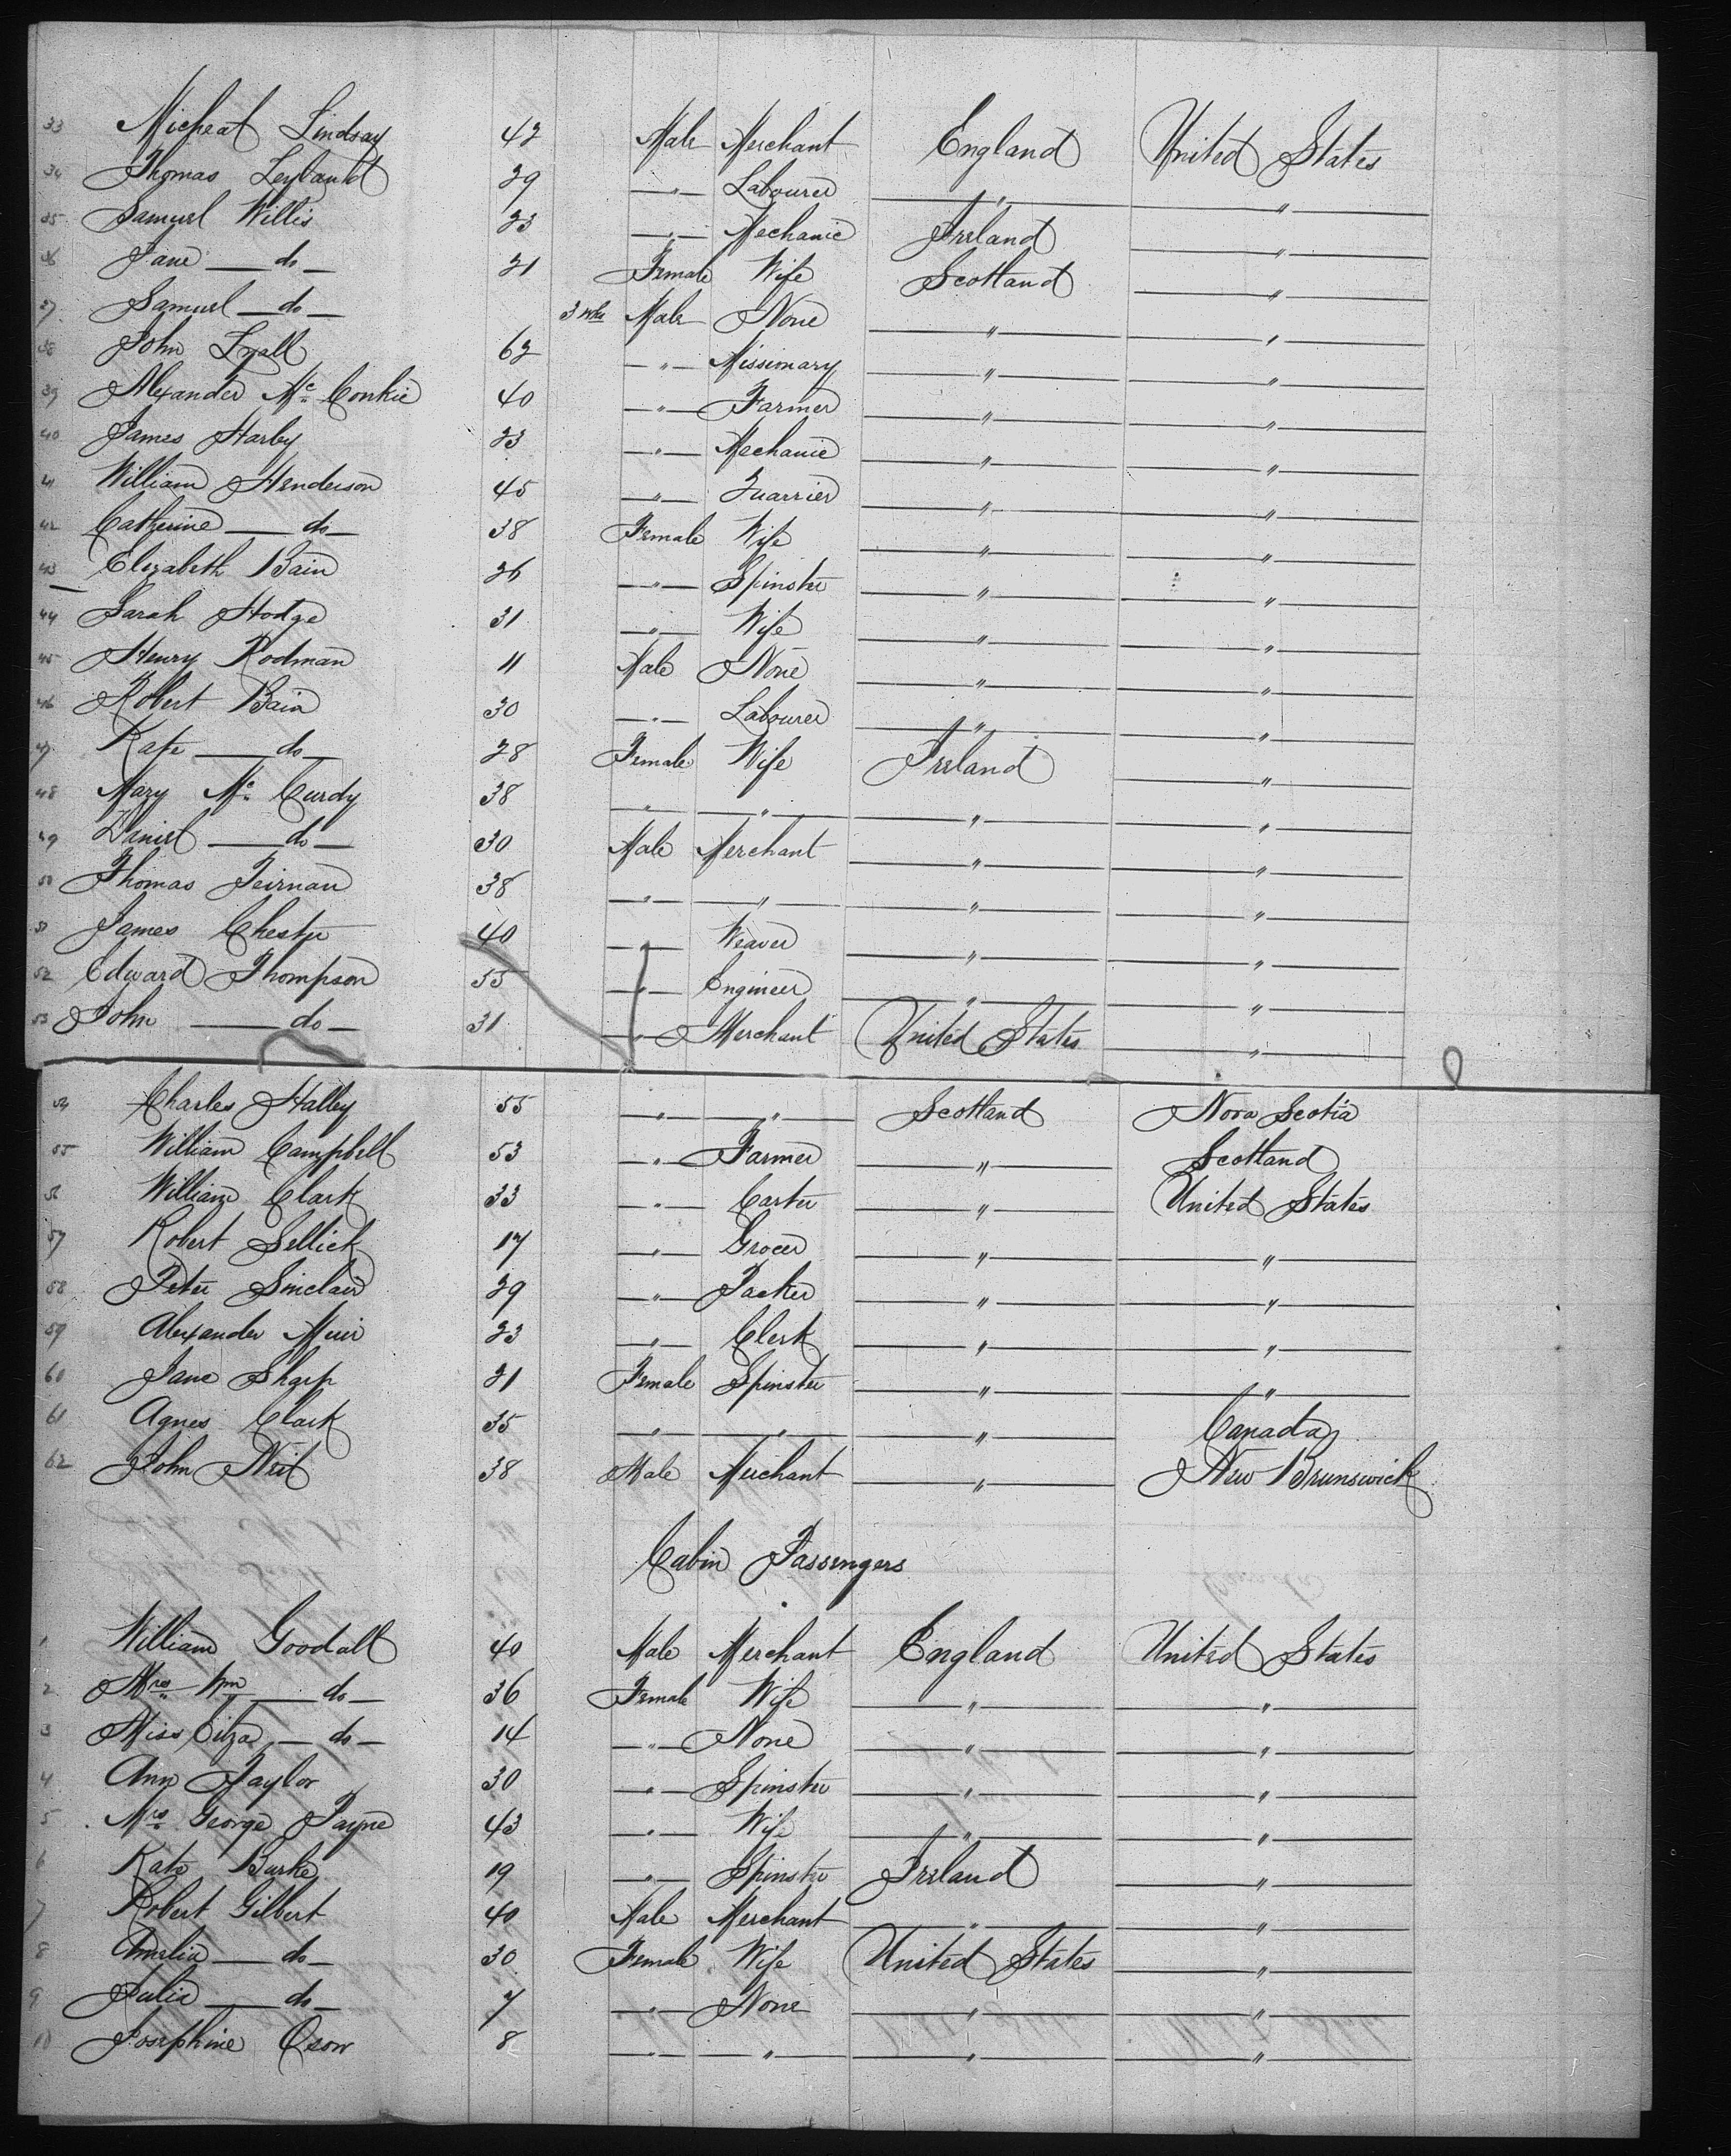 33 Micheal Lindsay 42 Male Merchant England United States
34 Thomas Leyland 29 " Labourer " "
35 Samuel Willis 23 " Mechanic Ireland "
36 Jane do 21 Female Wife Scotland "
37 Samuel do 3 wks Male None " "
38 John Lyall 62 " Missionary " "
39 Alexander Mc Conkie 40 " Farmer " "
40 James Harby 23 " Mechanic " "
41 William Henderson 45 " Quarrier " "
42 Catherine do 38 Female Wife " "
43 Elizabeth Bain 26 " Spinster " "
44 Sarah Hodge 31 " Wife " "
45 Henry Rodman 11 Male None " "
46 Robert Bain 30 " Labourer " "
47 Kate do 28 Female Wife Ireland "
48 Mary Mc Curdy 38 " " " "
49 Daniel do 30 Male Merchant " "
50 Thomas Teirnan 38 " " " "
51 James Chester 40 " Weaver " "
52 Edward Thompson 55 " Engineer " "
53 John do 31 " Merchant United States "
54 Charles Halley 55 " " Scotland Nova Scotia
55 William Campbell 53 " Farmer " Scotland
56 William Clark 33 " Carter " United States
57 Robert Sellick 17 " Grocer " "
58 Peter Sinclair 29 " Packer " "
59 Alexander Muir 23 " Clerk " "
60 Jane Sharp 21 Female Spinster " "
61 Agnes Clark 35 " " " Canada
62 John Neil 38 Male Merchant " New Brunswick
Cabin Passengers
1 William Goodall 40 Male Merchant England United States
2 Mrs Wm do 36 Female Wife " "
3 Miss Eliza do 14 " None " "
4 Ann Taylor 30 " Spinster " "
5 Mrs George Payne 43 " Wife " "
6 Kate Burke 19 " Spinster Ireland "
7 Robert Gilbert 40 Male Merchant " "
8 Amelia do 30 Female Wife United States "
9 Julia do 7 " None " "
10 Josephine 8 " " " "